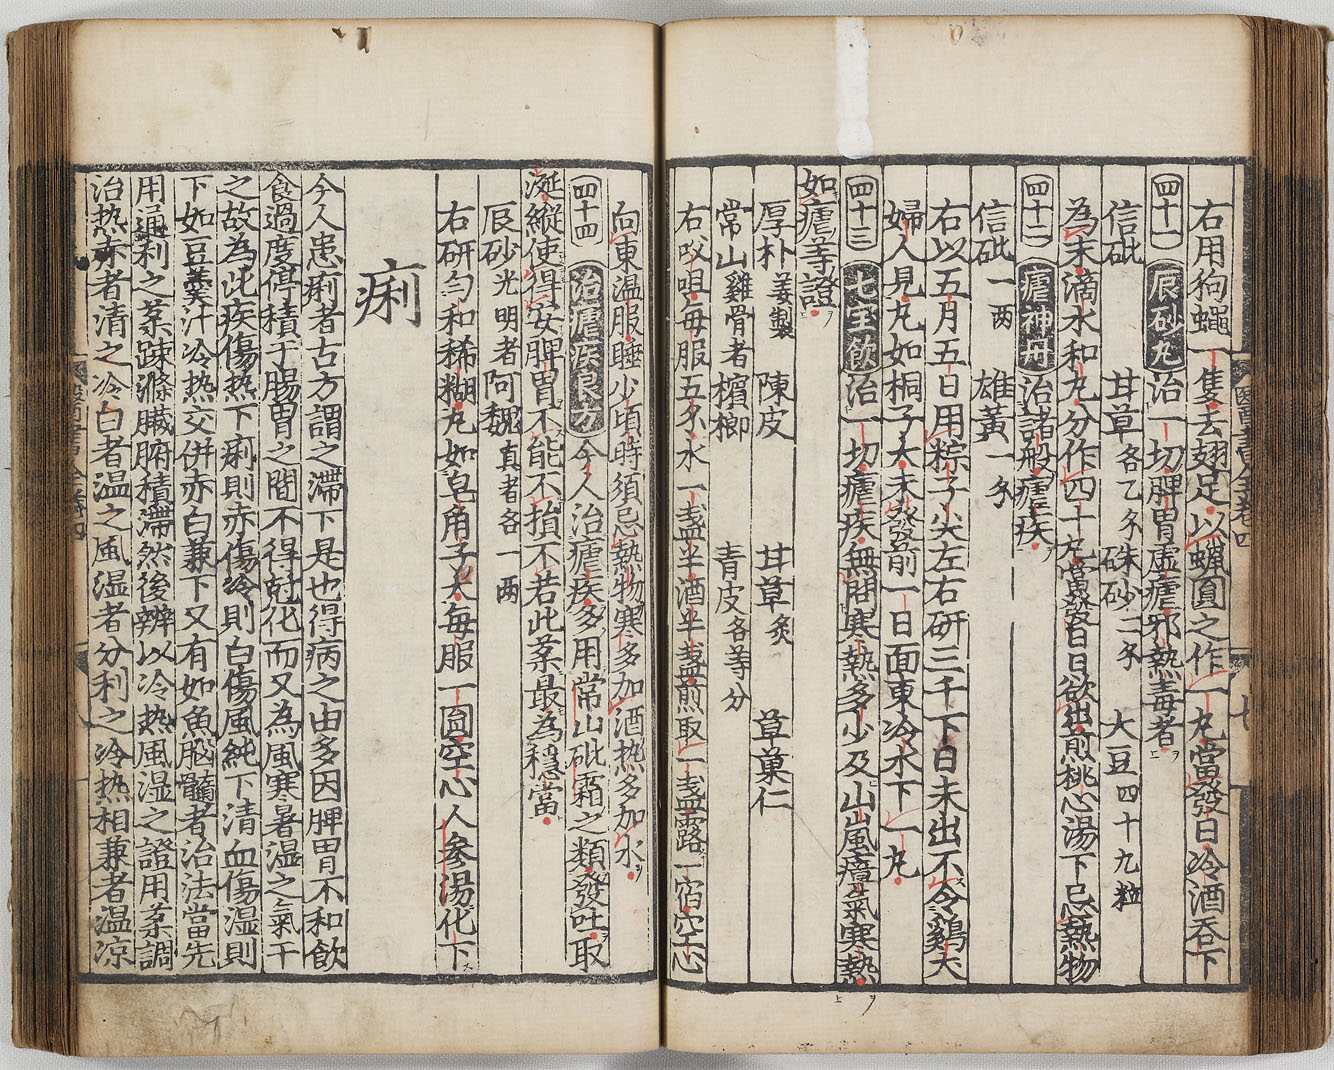 右用狗蠅一隻去翅足以蠟圓之作一丸當發日冷酒吞下
四十一 辰砂丸 治一切脾胃虛瘧邪熱毒者
信砒 甘草各乙分 硃砂二分 大豆四十九粒
為末滴水和丸分作四十丸當發日日欲出煎桃心湯下忌熱物
四十二 瘧神丹 治諸般瘧疾
信砒一两 雄黃一分
右以五月五日用粽子尖左右研三千下日未出不令鷄犬
婦人見丸如桐子大未發前一日面東冷水下一丸
四十三 七宝飲 治一切瘧疾無問寒熱多少及山嵐瘴氣寒熱
如瘧等證
厚朴姜製 陳皮 甘草炙 草菓仁
常山雞骨者 檳榔 青皮各等分
右㕮咀每服五分水一盞半酒半盞煎取一盞露一宿空心
向東温服睡少頃時須忌熱物寒多加酒热多加水
四十四 治瘧疾良方 今人治瘧疾多用常山砒霜之類發吐取
涎縱使得安脾胃不能不損不若此薬最為穩當
辰砂光明者 阿魏真者各一两
右研匀和稀糊丸如皂角子大每服一圓空心人參湯化下
痢
今人患痢者古方謂之滯下是也得病之由多因脾胃不和飲
食過度停積于腸胃之間不得尅化而又為風寒暑湿之氣干
之故為此疾傷热下痢則赤傷冷則白傷風純下清血傷湿則
下如豆羹汁冷热交併赤白兼下又有如魚脳髓者治法當先
用通利之薬疎滌臟腑積滯然後辨以冷热風湿之證用薬調
治热赤者清之冷白者温之風湿者分利之冷热相兼者温涼